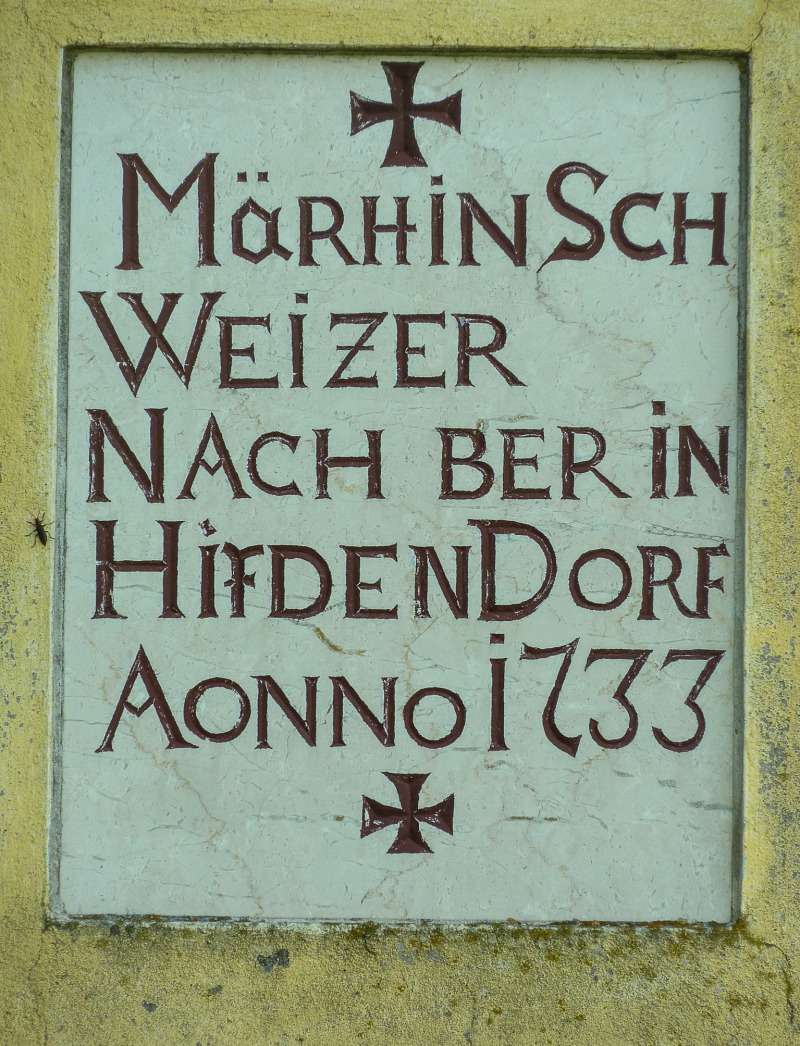 MäRHiN SCH
WEiZER
NACH BER iN
HiFDENDORF
AONNO 1733